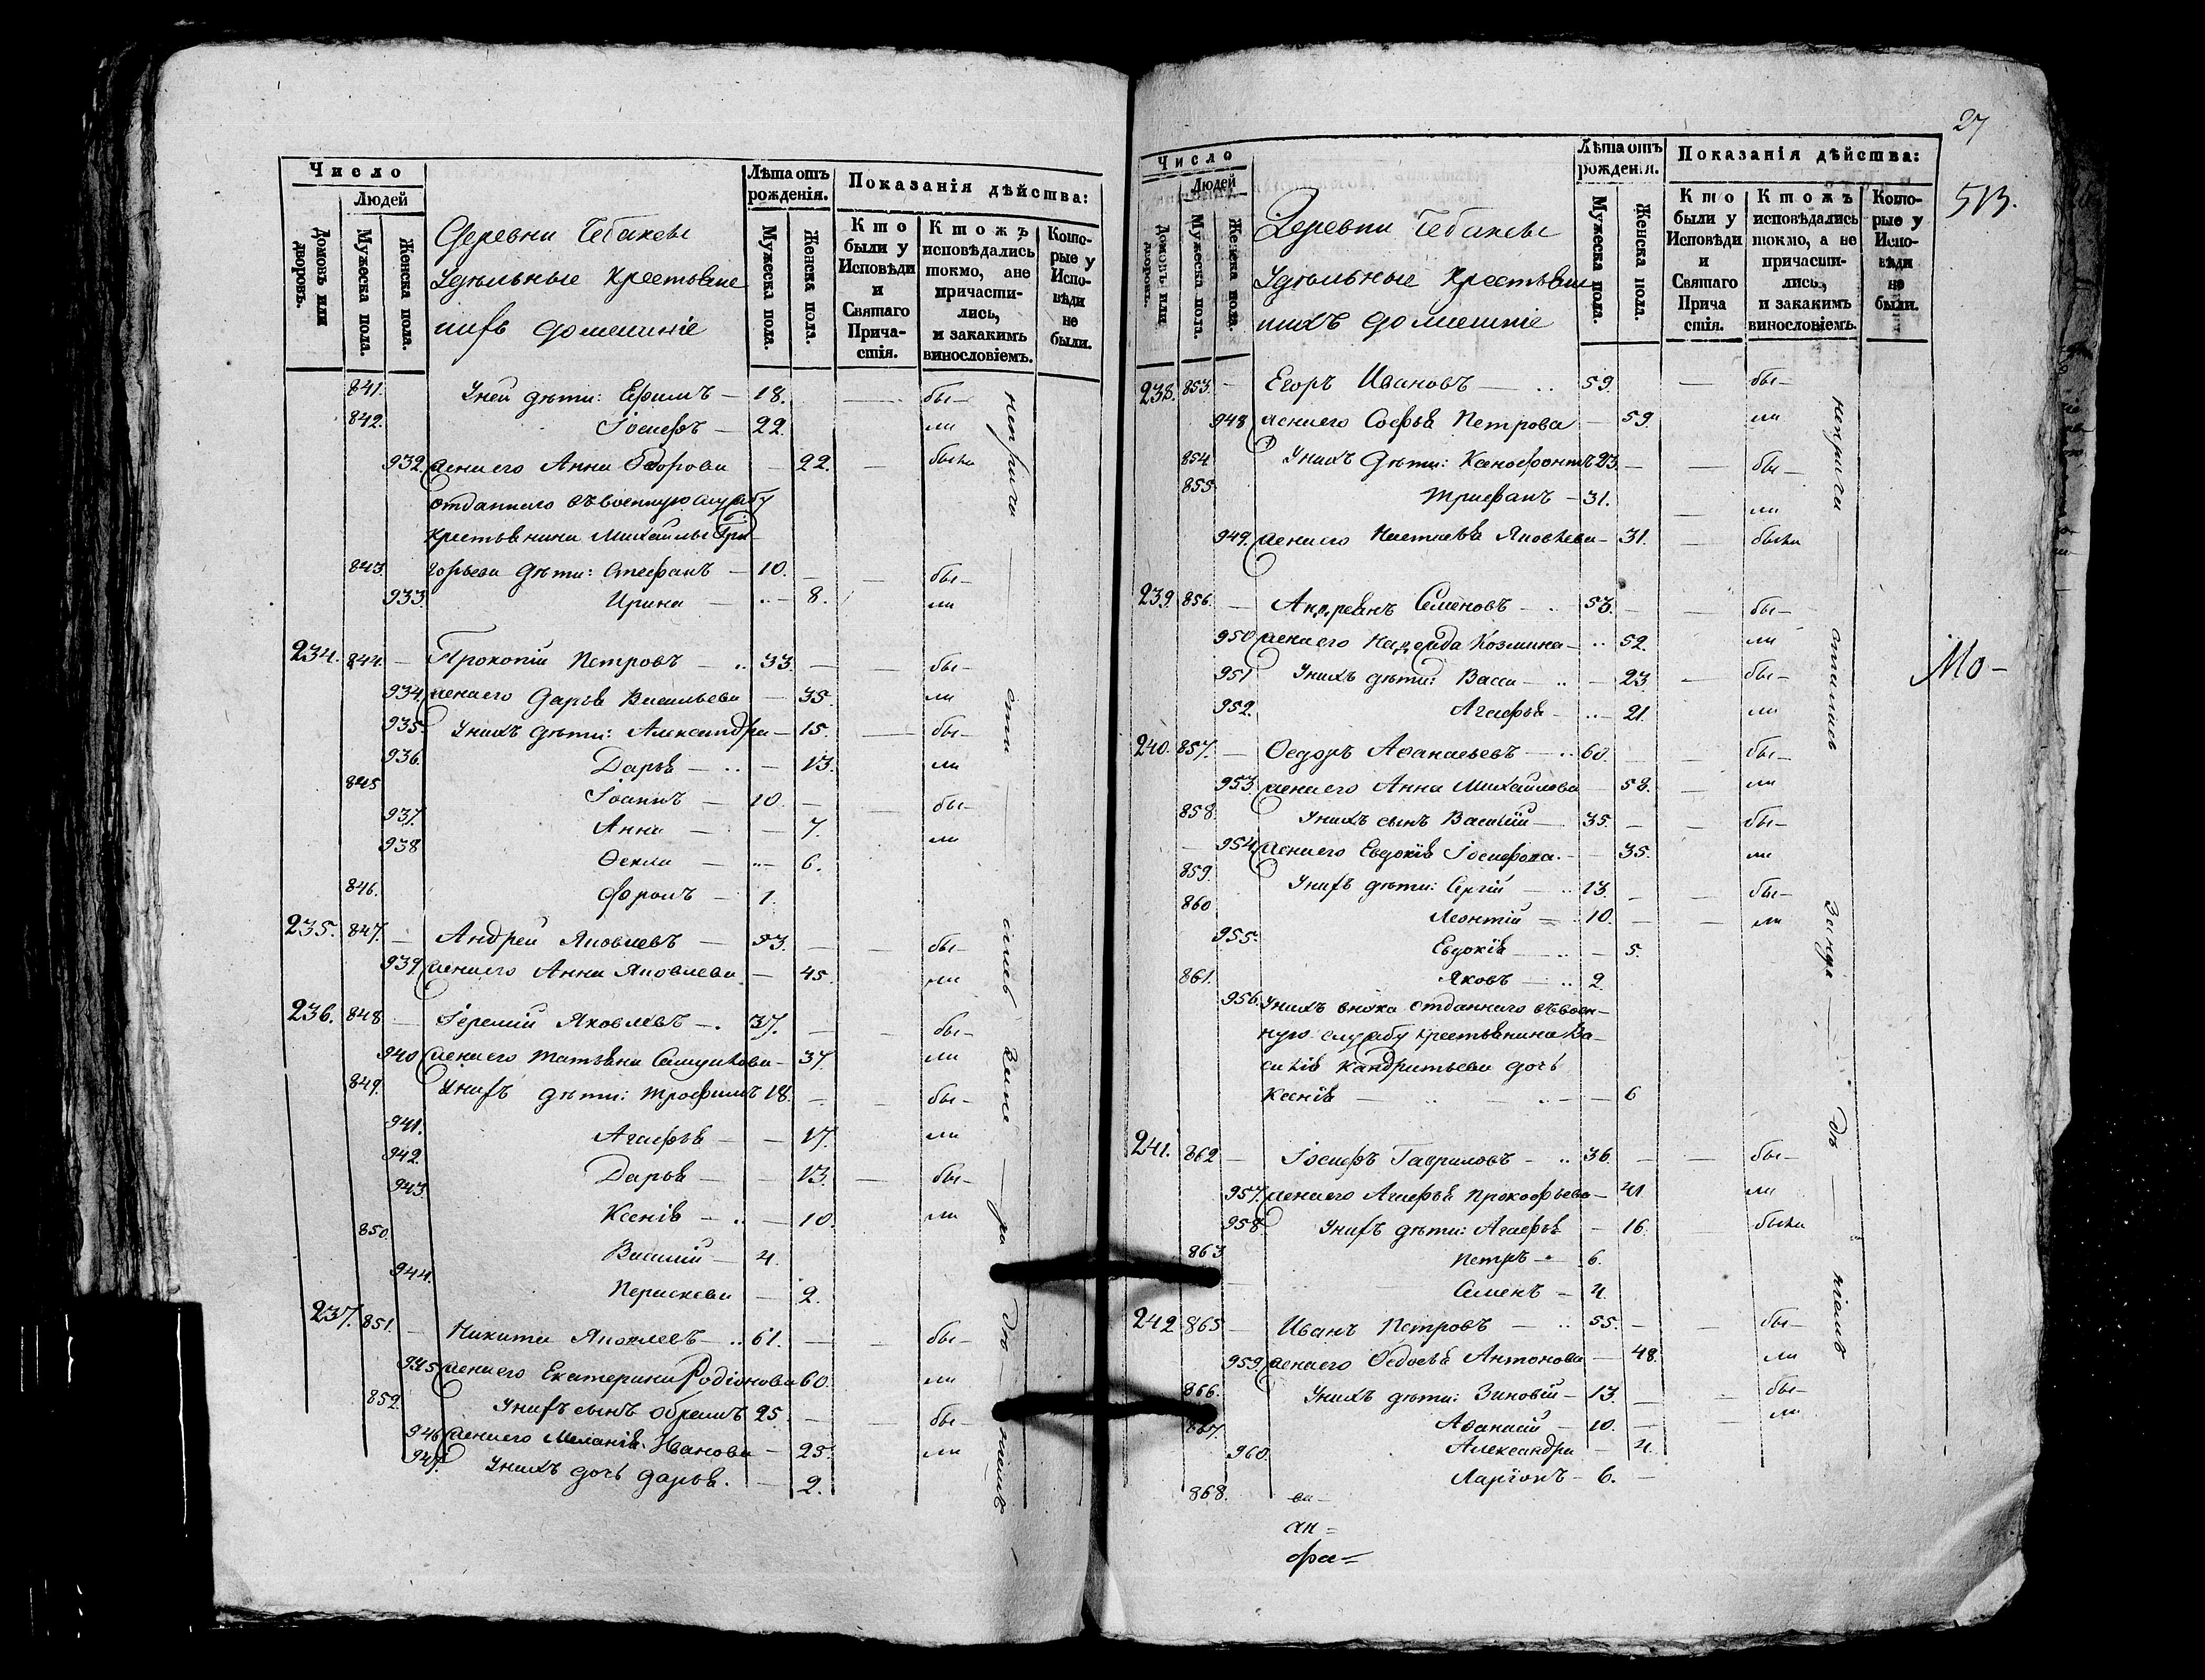 Число
Людей
Домовъ или дворовъ.
Мужеска пола.
Женска пола.
Деревни Чебаксы
Удѣльные крестьяне
и ихъ домашніе
Лѣта отъ рожденія.
Мужеска пола.
Женска пола.
Показанія дѣйства:
Кто были у Исповѣди и Святаго Прича-стія.
Ктожъ исповѣдались токмо, а не причасти-лись, и закакимъ винословіемъ.
Кото-рые у Испо-вѣди не были.
841. У ней дѣти: Ефимъ — 18. — бы—
842. Іосифъ — 22. ли
932. жена его Анна Ѳедорова — 22. — была
отданнаго въ военную службу
крестьянина Михайлы Гри-
843. горьева дѣти: Стефанъ — 10. — бы—
933. Ирина — 8. ли
234. 844. — Прокопій Петровъ — 33. — бы—
934. жена его Дарья Васильева — 35. ли
935. У нихъ дѣти: Александра — 15. — бы—
936. Дарья — 13. ли
845 Іоаннъ — 10. — бы—
937. Анна — 7. ли
938 Ѳекла — 6.
846. Фролъ — 1.
235. 847. — Андрей Яковлевъ — 53. — бы—
939 жена его Анна Яковлева — 45. ли
236. 848 — Іеремій Яковлевъ — 37. — бы—
940 жена его Татьяна Самуилова — 37. ли
849. У нихъ дѣти: Трофимъ 18. — бы—
941. Агафья — 17. ли
942. Дарья — 13. — бы—
943. Ксенія — 10. ли
850. Василій — 4.
944. Параскева — 2.
237. 851. — Никита Яковлевъ — 61. — бы—
945 жена его Екатерина Родіонова 60. ли
852. У нихъ сынъ Абрамъ 25. — бы—
946 жена его Меланія Иванова — 25. ли
947. У нихъ дочь Дарья. — 2.
27
513.
Число
Людей
Домовъ или дворовъ.
Мужеска пола.
Женска пола.
Деревни Чебаксы
Удѣльные крестьяне
и ихъ домашніе
Лѣта отъ рожденія.
Мужеска пола.
Женска пола.
Показанія дѣйства:
Кто были у Исповѣди и Святаго Прича стія.
Ктожъ исповѣдались токмо, а не причасти-лись, и закакимъ винословіемъ.
Кото-рые у Испо-вѣди не были.
238. 853. — Егоръ Ивановъ — 59. — бы—
948 жена его Софья Петрова — 59. ли
854 У нихъ дѣти: Ксенофонтъ 23. — — бы—
855 Трифанъ — 31. — ли
949. жена его Наталья Яковлева — 31. — была
239. 856. — Андреянъ Семеновъ — 53. — — бы—
950 жена его Надежда Козмина — 52. ли
951 У нихъ дѣти: Васса — 23. — бы—
952. Агафья — 21. ли
Мо—
240. 857. — Ѳедоръ Аѳанасьевъ — 60. — бы—
953. жена его Анна Михайлова — 58. — ли
858. У нихъ сынъ Василій — 35. — — бы—
954. жена его Евдокія Іосифова. — 35. ли
859. У нихъ дѣти: Сергій — 13. — — бы—
860 Леонтій — 10. — — ли
955. Евдокія — 5.
861. Яковъ — 2.
956. У нихъ внука отданнаго въ воен-
ную службу крестьянина Ва-
силія Кандратьева дочь
Ксенія — 6
241. 862 — Іосифъ Гавриловъ — 36. — — бы—
957. жена его Агафья Прокофьева — 41 ли
958. У нихъ дѣти: Агафья — 16. была
863 Петръ — 6.
Семенъ — 4.
242. 865 — Иванъ Петровъ — 55. — — бы—
959. жена его Ѳедосья Антонова — 48. ли
866. У нихъ дѣти: Зиновій — 13. — — бы—
867. Аѳанасій — 10. — — ли
960. Александра — 4.
868. Ларіонъ — 6. —